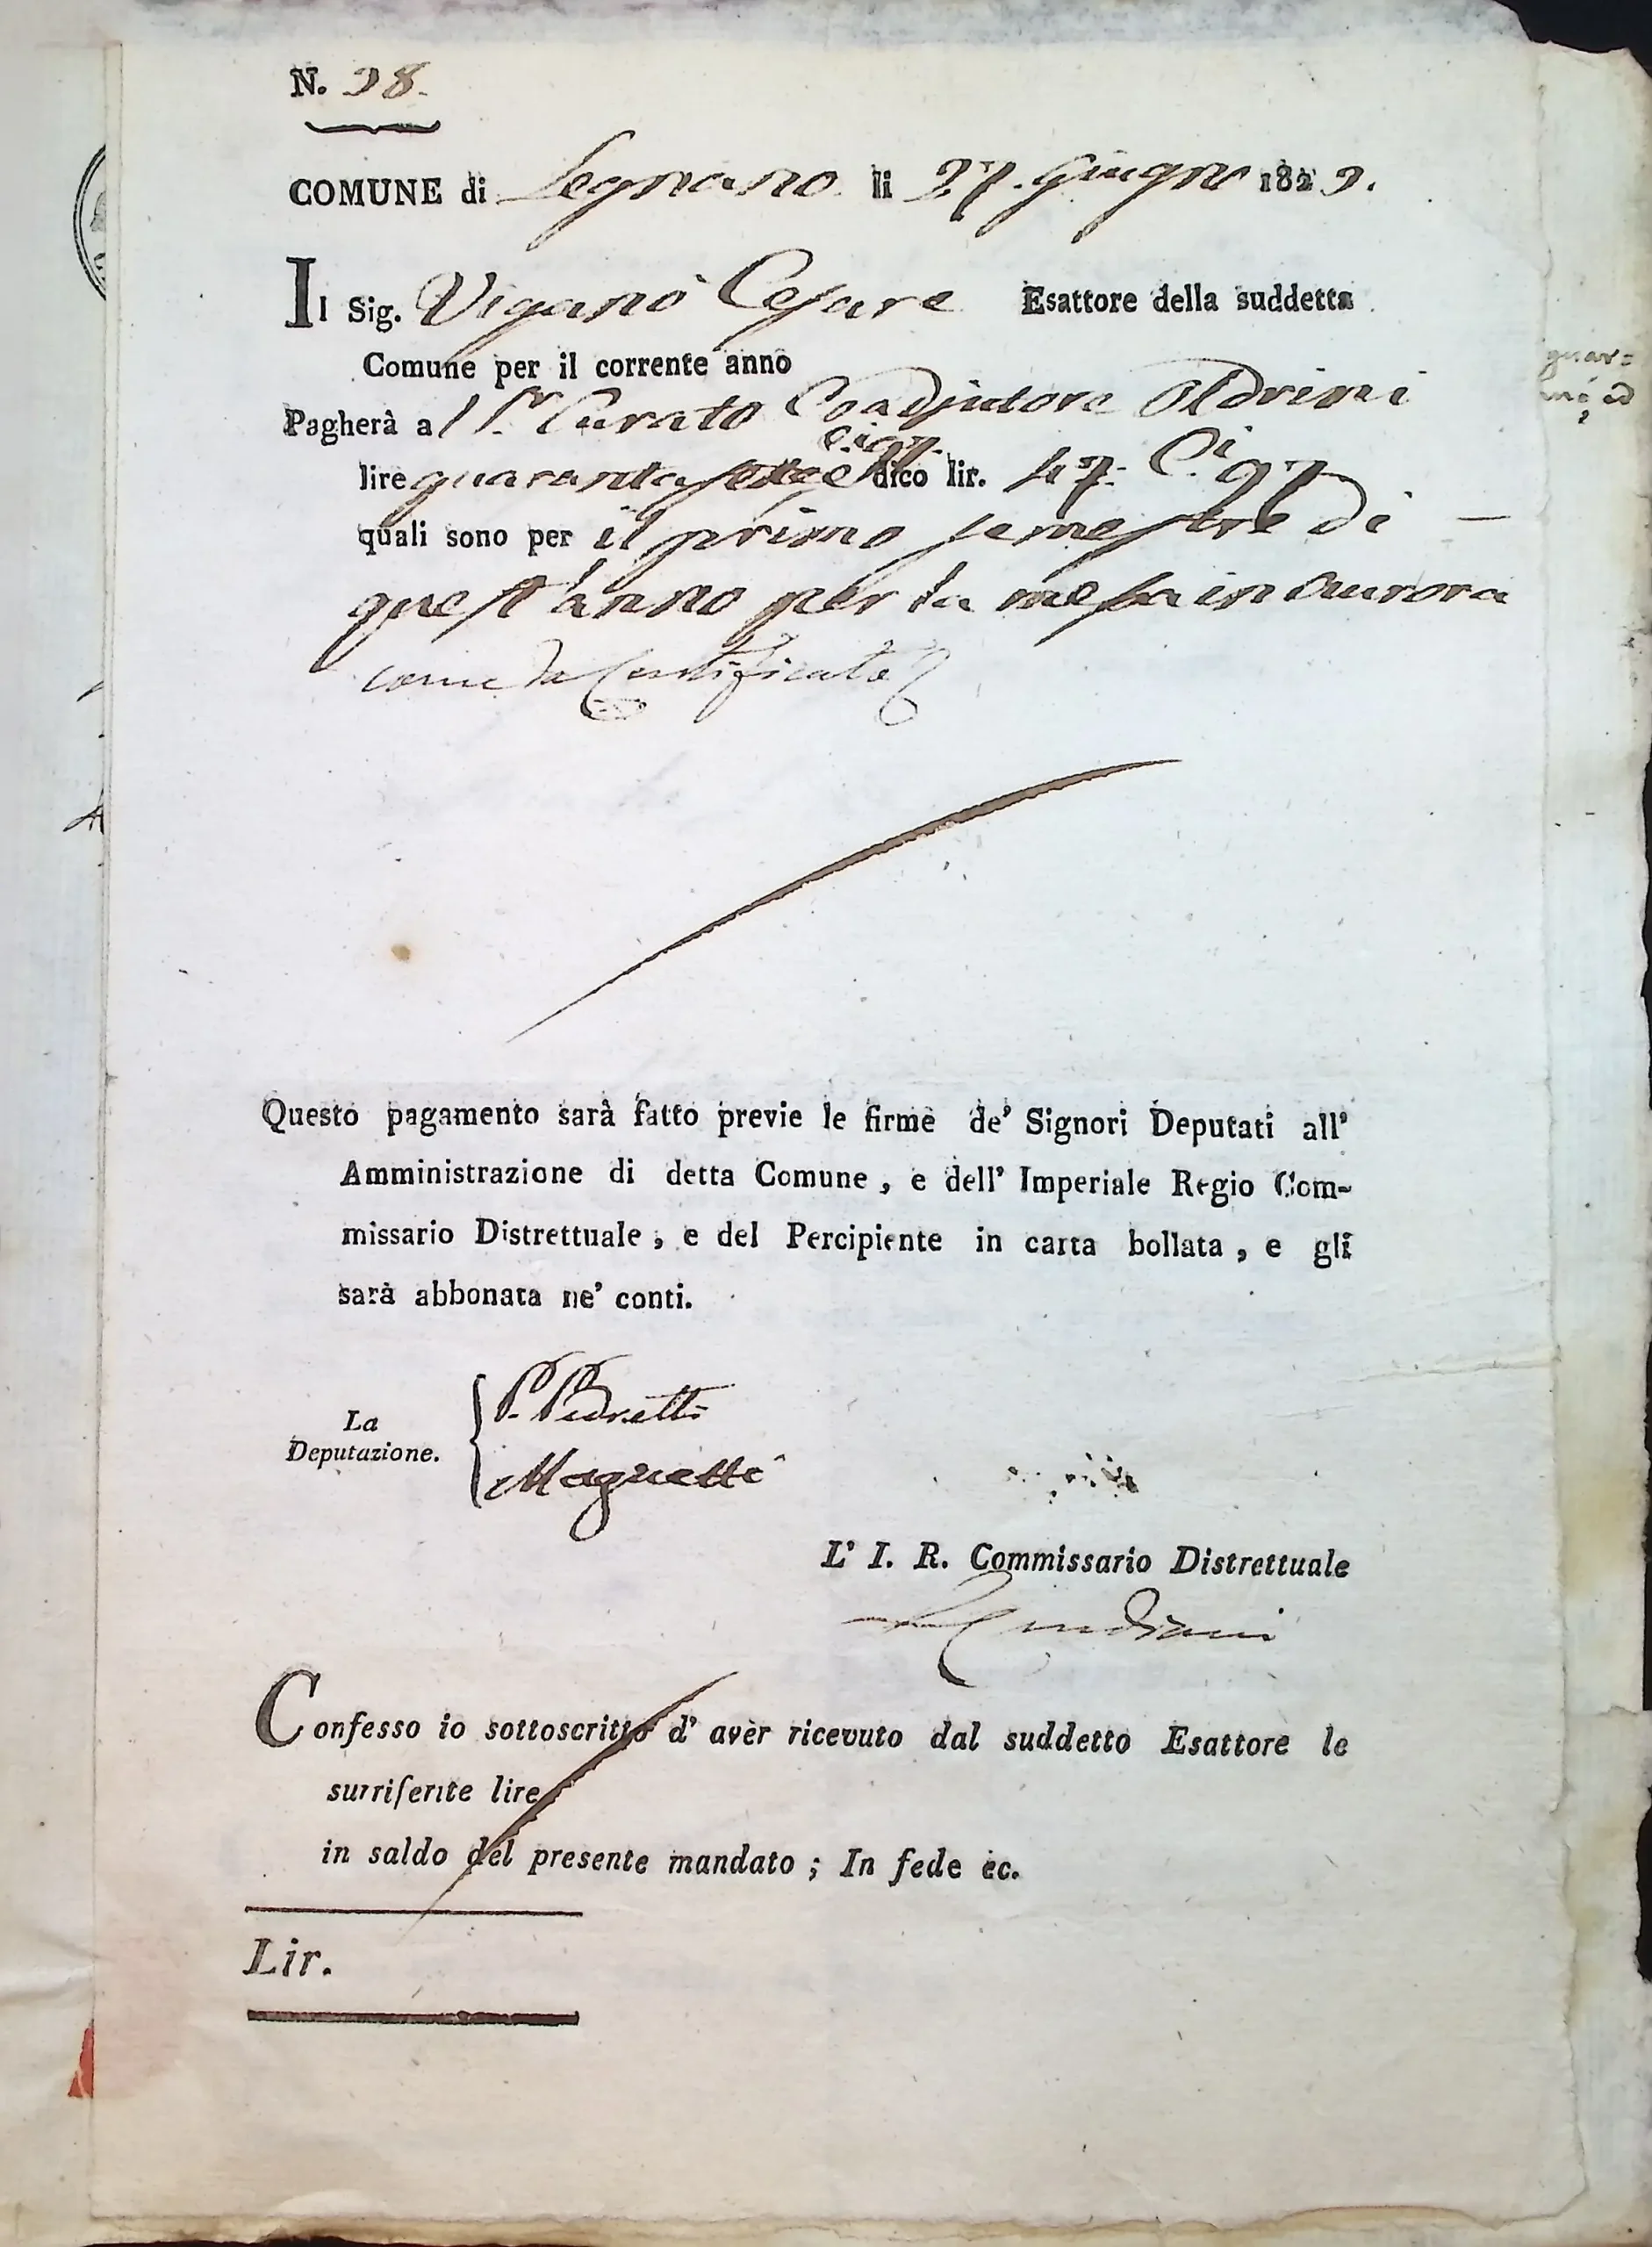 N. 98.
COMUNE di Legnano li 27. Giugno 1829.
Il Sig. Viganò Cesare Esattore della suddetta
Comune per il corrente anno
Pagherà al Sr. Curato Coadjutore Oldrini
Ci 97
lire quarantasette dico lir. 47. Ci 97
quali sono per il primo semestre di —
quest'anno per la messa in Aurora
come da Certificato
Questo pagamento sarà fatto previe le firme de' Signori Deputati all'
Amministrazione di detta Comune, e dell' Imperiale Regio Com-
missario Distrettuale, e del Percipiente in carta bollata, e gli
sarà abbonata ne' conti.
La
Deputazione.
P. Pedretti
Magnetti
L' I. R. Commissario Distrettuale
Confesso io sottoscritto d' aver ricevuto dal suddetto Esattore le
surriferite lire
in saldo del presente mandato; In fede ec.
Lir.